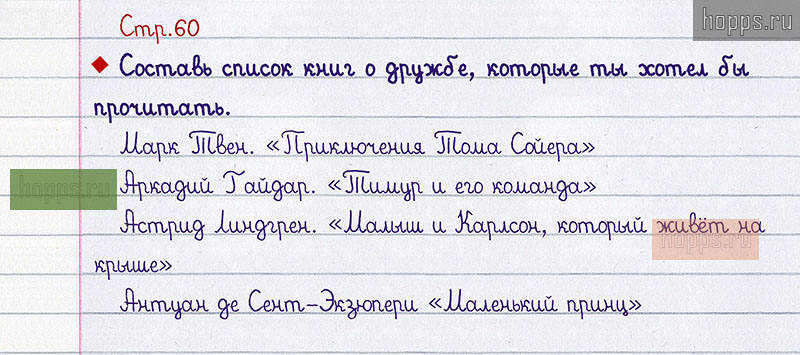 hopps.ru
Стр.60
Составь список книг о дружбе, которые ты хотел бы
прочитать.
Марк Твен. «Приключения Тома Сойера»
hopps.ru
Аркадий Гайдар. «Тимур и его команда»
Астрид Линдгрен. «Малыш и Карлсон, который живёт на
hopps.ru
крыше»
Антуан де Сент-Экзюпери «Маленький принц»